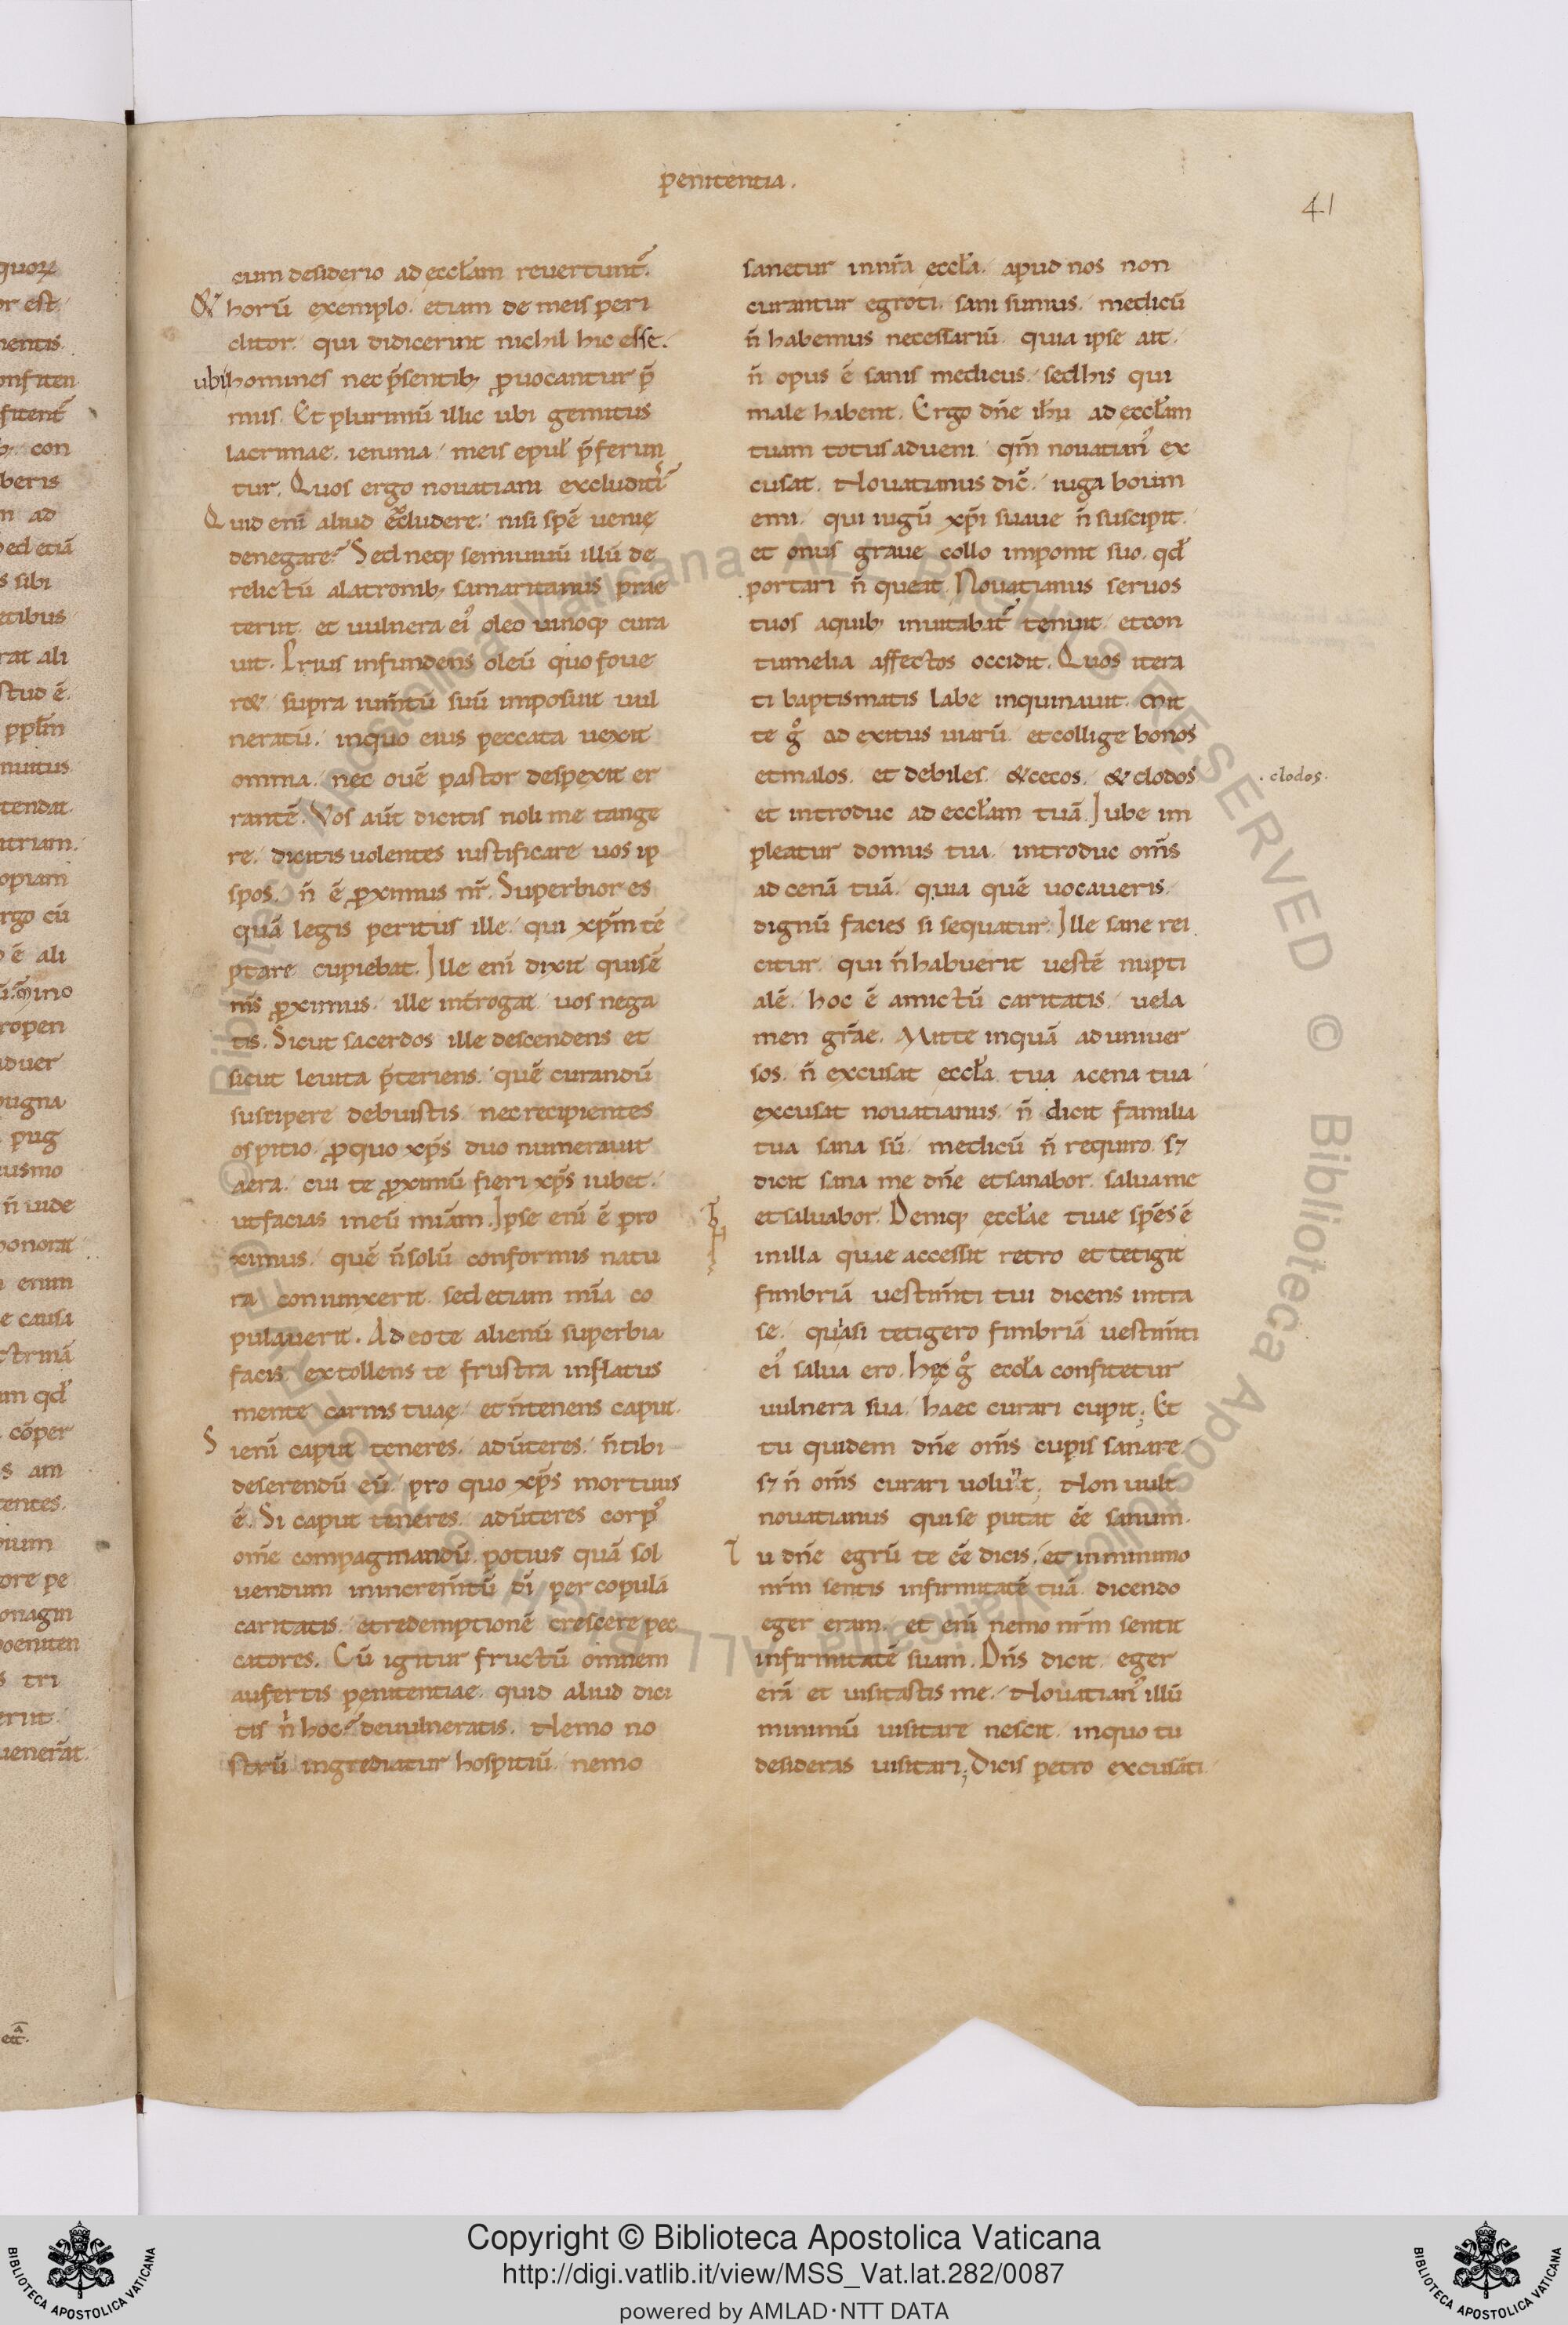 penitentia.
41
cum desiderio ad eccl̄am reuertunt̄.
& horū exemplo. etiam de meis peri
clitor. qui didicerint nichil hic esse.
ubi homines nec p̄sentib; ꝓuocantur p̄
miis. Et plurimū illic ubi gemitus
lacrimae. ieiunia. meis epul' p̄ferun
tur. Quos ergo nouatiani excluditis
Quid eni aliud excludere. nisi spē uenię
denegare? Sed neq; semiuiuū illū de
relictū alatronib; samaritanus prae
teriit. et uulnera ei' oleo uinoq; cura
uit. Prius infundens oleū quo foue
r&. supra ium̄tū suū imposuit uul
neratū. inquo eius peccata uexit
omnia. nec ouē pastor despexit er
rantē. Vos aūt dicitis noli me tange
re. dicitis uolentes iustificare uos ip
spos. n̄ ē ꝓximus nr̄. Superbior es
quā legis peritus ille. qui xp̄m tē
ptare cupiebat. Ille enī dixit quis ē
m̄s ꝓximus. ille int̄rogat uos nega
tis. Sicut sacerdos ille descendens et
sicut leuita p̄teriens. quē curandū
suscipere debuistis. nec recipientes
ospitio. ꝓquo xp̄s duo numerauit
aera. cui te ꝓximū fieri xp̄s iubet.
utfacias ineū mīam. Ipse enī ē pro
ximus. quē n̄solū conformis natu
ra coniunxerit. sed etiam mīa co
pulauerit. Adeote alienū superbia
facis. extollens te frustra inflatus
mente carnis tuaę. et n̄tenens caput.
Sienī caput teneres. adūteres. n̄tibi
deserendū eū. pro quo xp̄s mortuus
ē. Si caput teneres. adūteres corp'
om̄e compaginandū potius quā sol
uendum inincrem̄tū dī per copulā
caritatis. etredemptionē crescere pec
catores. Cū igitur fructū omnem
aufertis penitentiae. quid aliud dici
tis n̄ hoc? deuulneratis. Nemo no
strū ingrediatur hospitiū. nemo
sanetur innr̄a eccl̄a. apud nos non
curantur egroti. sani sumus. medicū
n̄ habemus necessariū. quia ipse ait.
n̄ opus ē sanis medicus. sed his qui
male habent. Ergo dn̄e ih̄u ad eccl̄am
tuam totus adueni. qm̄ nouatian' ex
cusat. Nouatianus dic̄. iuga boum
emi. qui iugū xp̄i suaue n̄ suscipit.
et onus graue collo imponit suo. qd̄
portari n̄ queat. Nouatianus seruos
tuos aquib; inuitabat̄ tenuit. etcon
tumelia affectos occidit. Quos itera
ti baptismatis labe inquinauit. Mit
te g° ad exitus uiarū. et collige bonos
etmalos. et debiles. &cecos. & clodos
.clodos.
et introduc ad eccl̄am tuā. Iube im
pleatur domus tua. introduc om̄s
ad cenā tuā. quia quē uocaueris.
dignū facies si sequatur. Ille sane rei
citur. qui n̄habuerit uestē nupti
alē. hoc ē amictū caritatis. uela
men gr̄ae. Mitte inquā ad uniuer
sos. n̄ excusat eccl̄a tua acena tua
excusat nouatianus. n̄ dicit familia
tua sana sū. medicū n̄ requiro. sꝫ
dicit sana me dn̄e etsanabor. saluame
etsaluabor. Deniq; eccl̄ae tuae spēs ē
inilla quae accessit retro et tetigit
fimbriā uestim̄ti tui dicens intra
se. quasi tetigero fimbriā uestim̄ti
ei' salua ero. hęc g° eccl̄a confitetur
uulnera sua. haec curari cupit; Et
tu quidem dn̄e om̄s cupis sanare.
sꝫ n̄ om̄s curari uolunt; Non uult
nouatianus qui se putat ēe sanum.
Tu dn̄e egrū te ēe dicis. et inminimo
nr̄m sentis infirmitatē tuā dicendo
eger eram. et enī nemo nr̄m sentit
infirmitatē suam. Dn̄s dicit. eger
erā et uisitastis me. Nouatian' illū
minimū uisitare nescit. inquo tu
desideras uisitari; Dicis petro excusāti
Copyright © Biblioteca Apostolica Vaticana
http://digi.vatlib.it/view/MSS_Vat.lat.282/0087
powered by AMLAD·NTT DATA